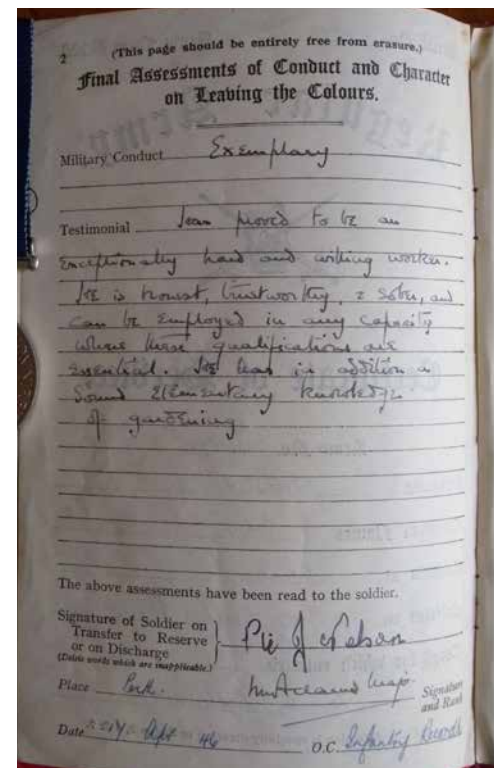 2
(This page should be entirely free from erasure.)
Final Assessments of Conduct and Character
on Leaving the Colours.
Military Conduct Exemplary
Testimonial Has proved to be an
Exceptionally hard and willing worker.
He is honest, trustworthy, & sober, and
can be employed in any capacity
where these qualifications are
essential. He has in addition a
sound elementary knowledge
of gardening
The above assessments have been read to the soldier.
Signature of Soldier on
Transfer to Reserve
or on Discharge
(Delete words which are inapplicable.)
Pte J
Place Perth. Major Signature
and Rank
Date Sept 46 O.C. Infantry Records